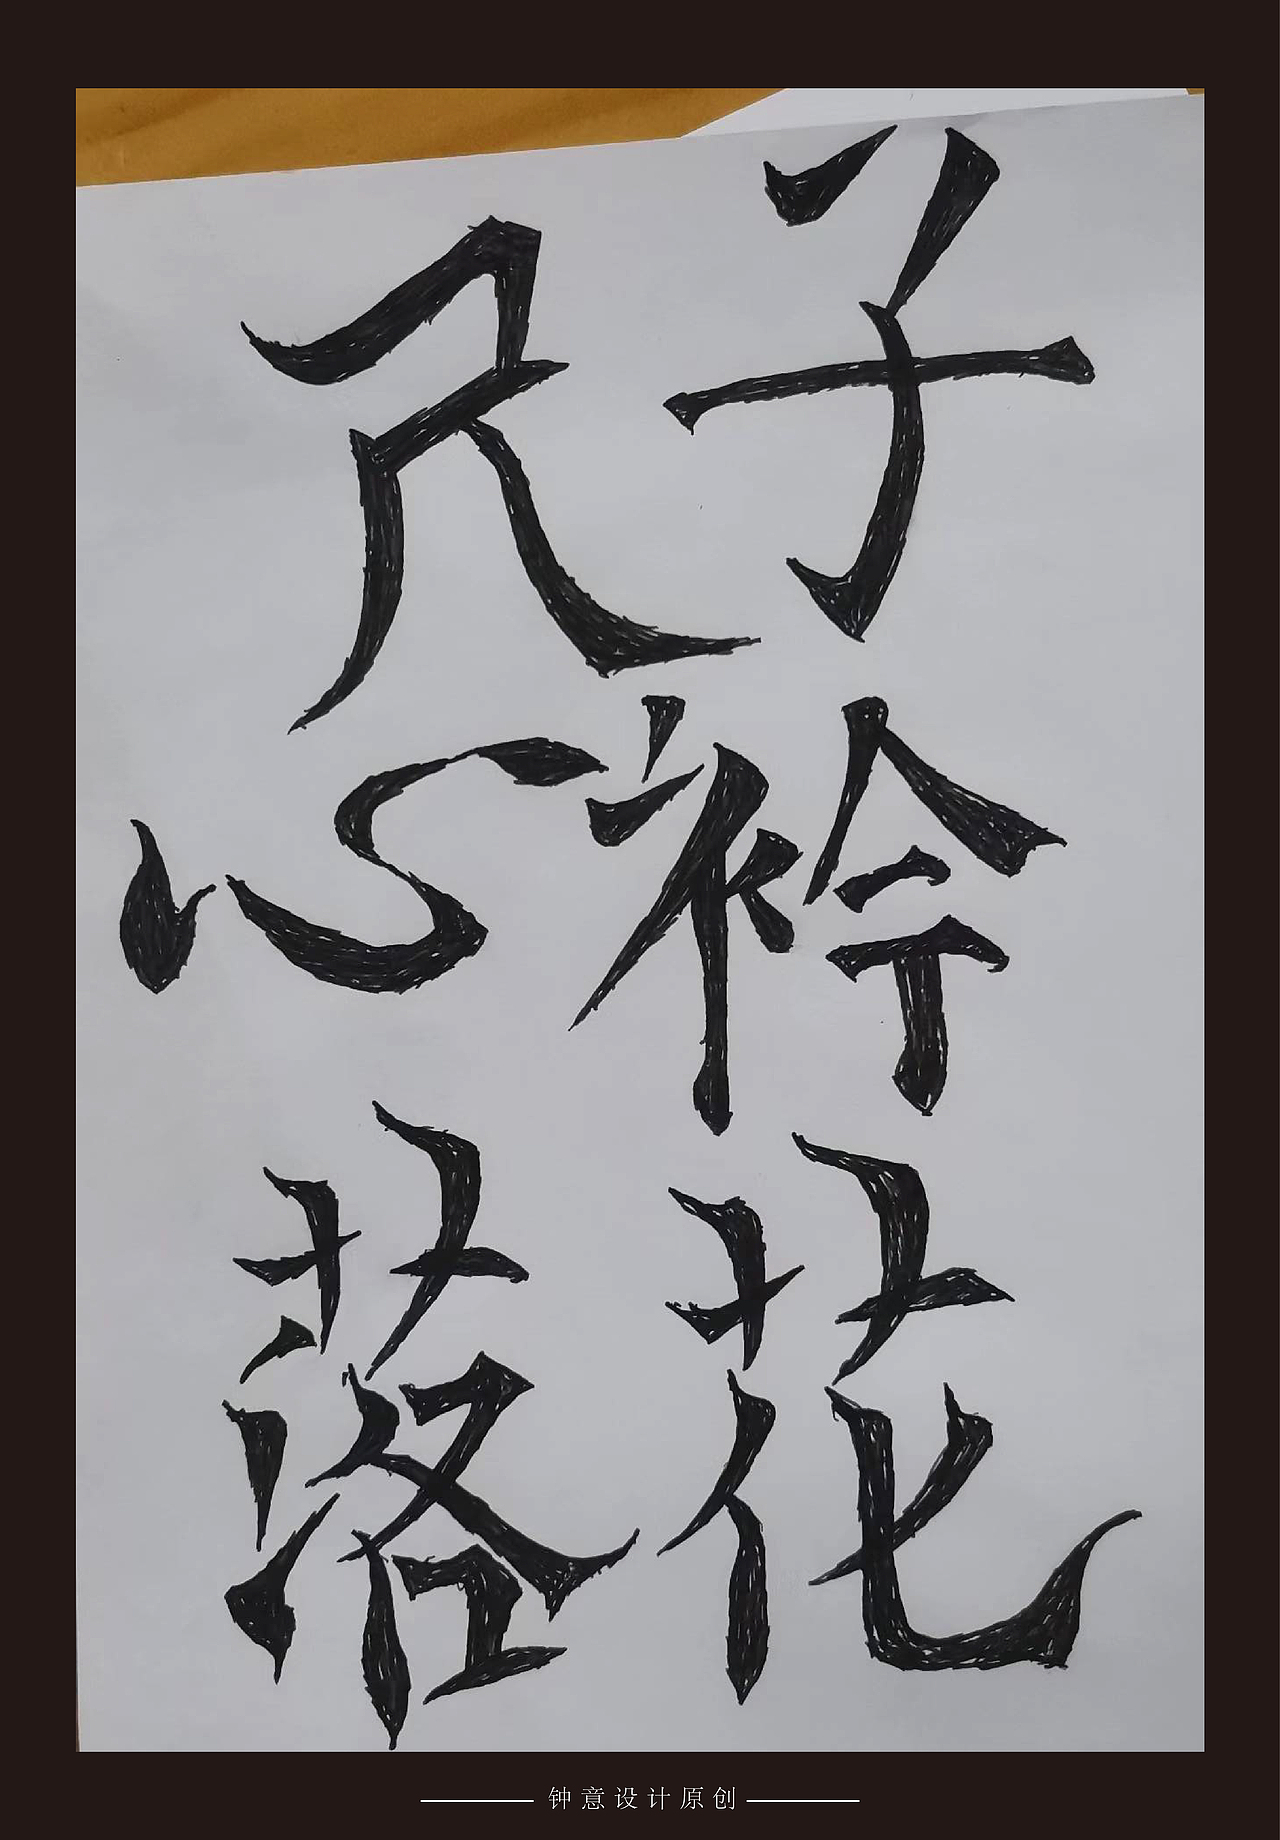 子衿花
心落
钟意设计原创